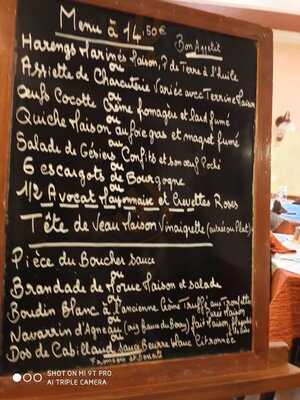 Menu à 14,50€
Bon Appetit
Harengs Marinés Maison, P. de Terre à l'huile
ou
Assiette de Charcuterie Variée avec Terrine Maison
ou
Oeufs Cocotte Crème fromagère et lard fumé
ou
Quiche Maison au foie gras et magret fumé
ou
Salade de Gésiers Confits et son oeuf Poché
ou
6 escargots de Bourgogne
ou
1/2 Avocat Mayonnaise et Crevettes Roses
Tête de Veau Maison Vinaigrette (entrée ou Plat)
Pièce du Boucher sauce
ou
Brandade de Morue Maison et salade
ou
Boudin Blanc à l'ancienne Crème Truffé aux
Purée Maison
Navarrin d'Agneau fait Maison
ou
Dos de Cabillaud sauce Beurre blanc Citronnée
Fromage et Dessert
SHOT ON MI 9T PRO
AI TRIPLE CAMERA